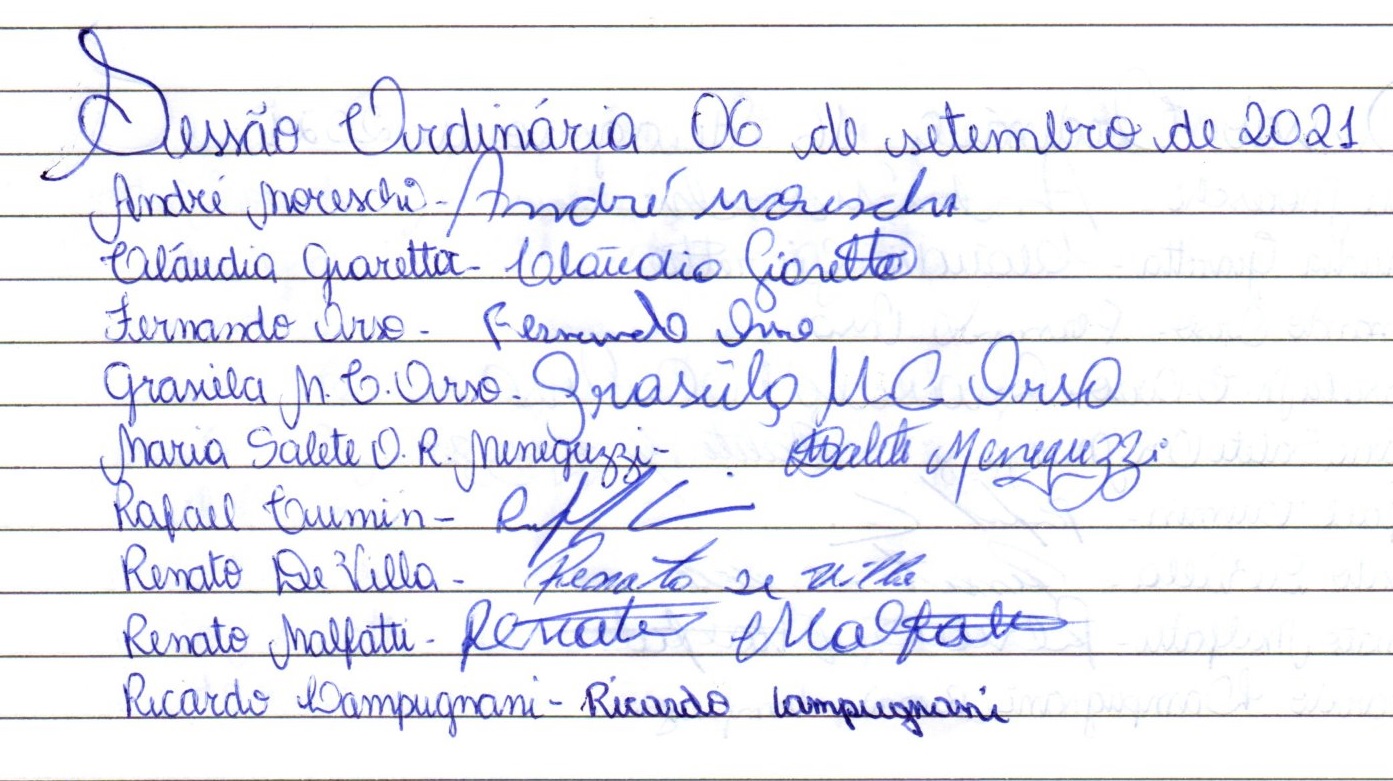 Sessão Ordinária 06 de setembro de 2021
André Moreschi - André Moreschi
Cláudia Giaretta - Claudia Giaretta
Fernando Orso - Fernando Orso
Grasiela M. C. Orso - Grasiela M C Orso
Maria Salete O. R. Meneguzzi - Salete Meneguzzi
Rafael -
Renato De Villa - Renato De Villa
Renato Malfatti - Renato Malfatti
Ricardo Campugnani - Ricardo Campugnani